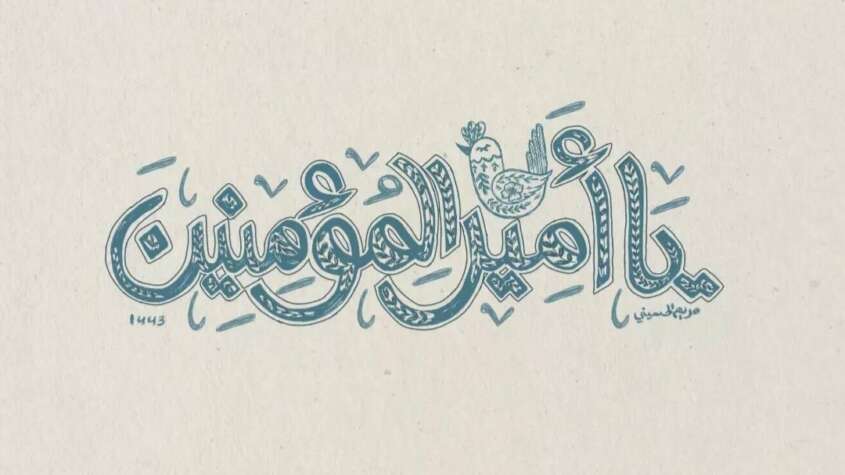 يَا أَمِيرَ الْمُؤْمِنِينَ
مريم الحسيني
١٤٤٣